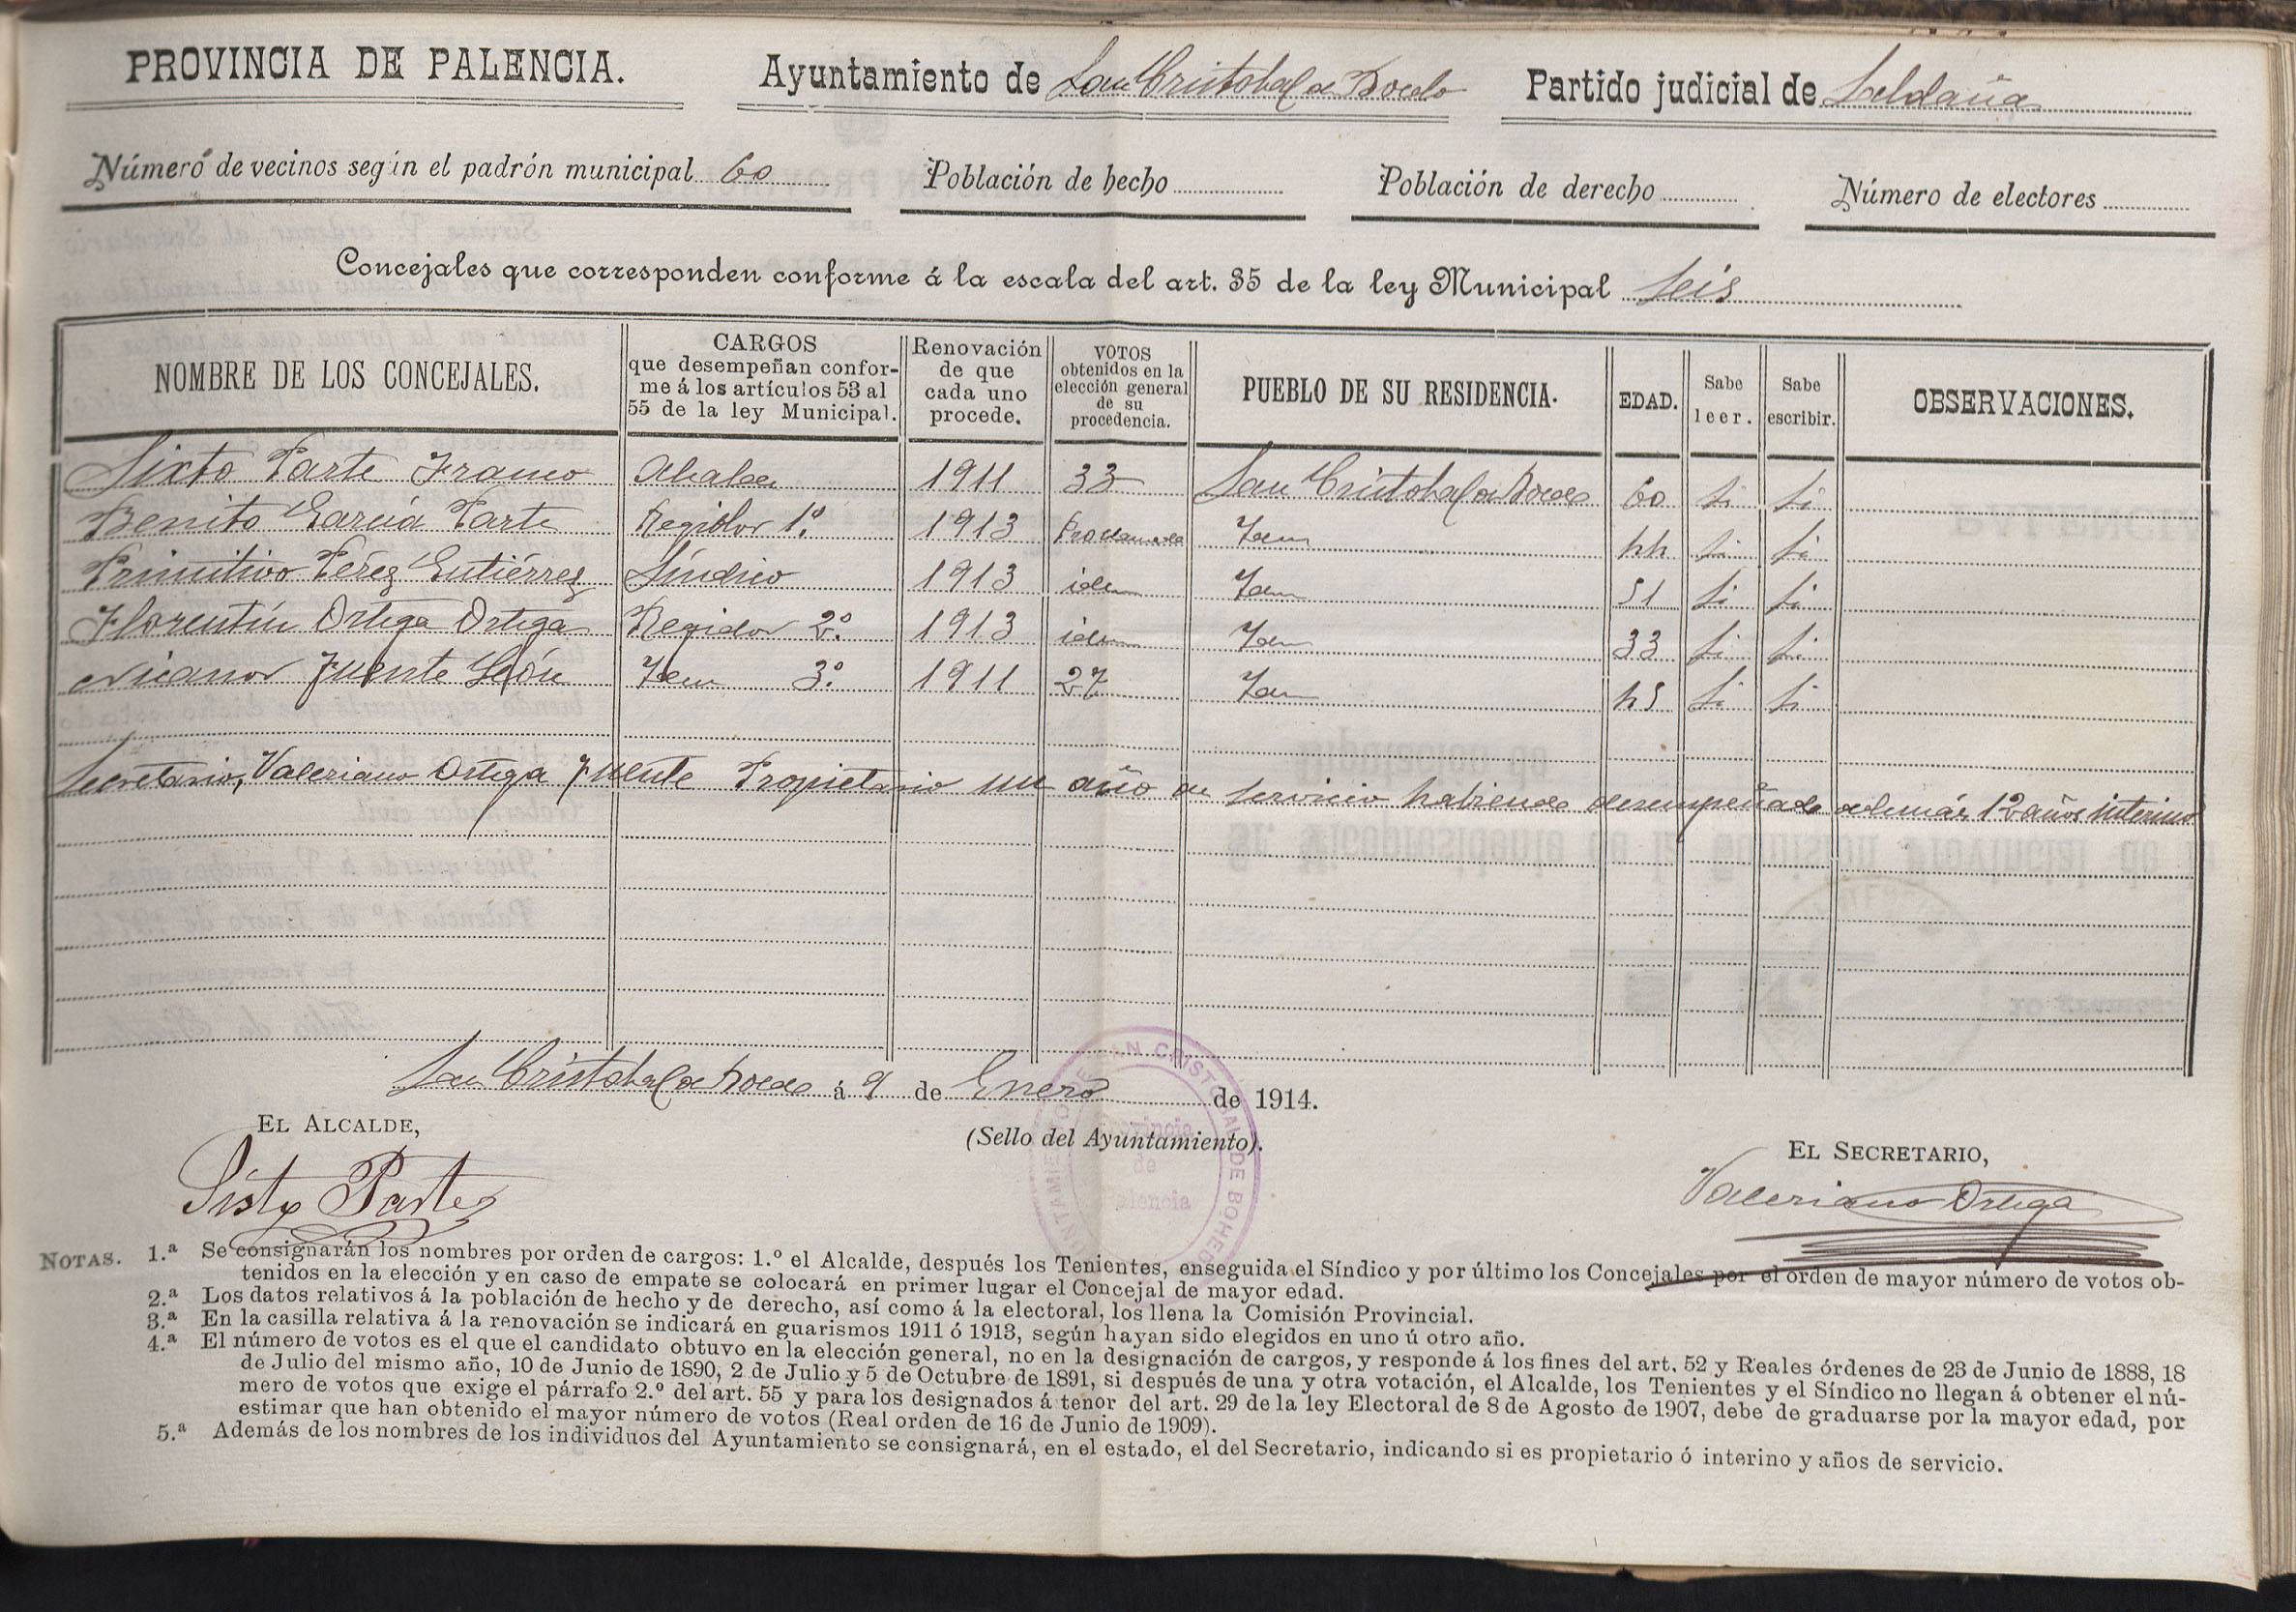 PROVINCIA DE PALENCIA.
Ayuntamiento de San Cristobal de Boedo
Partido judicial de Saldaña
Número de vecinos según el padrón municipal 60
Población de hecho
Población de derecho
Número de electores
Concejales que corresponden conforme á la escala del art. 35 de la ley Municipal Seis
NOMBRE DE LOS CONCEJALES.
CARGOS
que desempeñan confor-
me á los artículos 53 al
55 de la ley Municipal.
Renovación
de que
cada uno
procede.
VOTOS
obtenidos en la
elección general
de su
procedencia.
PUEBLO DE SU RESIDENCIA.
EDAD.
Sabe
leer.
Sabe
escribir.
OBSERVACIONES.
Sixto Parte Franco Alcalde 1911 33 San Cristobal de Boedo 60 Si Si
Benito García Parte Regidor 1º. 1913 Proclamado Idem 44 Si Si
Primitivo Pérez Gutiérrez Síndico 1913 idem Idem 51 Si Si
Florentín Ortega Ortega Regidor 2º. 1913 idem Idem 33 Si Si
Nicanor Fuente León Idem 3º. 1911 27 Idem 45 Si Si
Secretario, Valeriano Ortega Fuente Propietario un año de servicio habiendo desempeñado además 12 años interino
San Cristobal de Boedo á 9 de Enero de 1914.
EL ALCALDE,
(Sello del Ayuntamiento).
EL SECRETARIO,
Sisto Parte
Valeriano Ortega
SAN CRISTOBAL DE BOHEDO
Provincia
de
Palencia
NOTAS. 1.ª Se consignarán los nombres por orden de cargos: 1.º el Alcalde, después los Tenientes, enseguida el Síndico y por último los Concejales por el orden de mayor número de votos ob-
tenidos en la elección y en caso de empate se colocará en primer lugar el Concejal de mayor edad.
2.ª Los datos relativos á la población de hecho y de derecho, así como á la electoral, los llena la Comisión Provincial.
3.ª En la casilla relativa á la renovación se indicará en guarismos 1911 ó 1913, según hayan sido elegidos en uno ú otro año.
4.ª El número de votos es el que el candidato obtuvo en la elección general, no en la designación de cargos, y responde á los fines del art. 52 y Reales órdenes de 23 de Junio de 1888, 18
de Julio del mismo año, 10 de Junio de 1890, 2 de Julio y 5 de Octubre de 1891, si después de una y otra votación, el Alcalde, los Tenientes y el Síndico no llegan á obtener el nú-
mero de votos que exige el párrafo 2.º del art. 55 y para los designados á tenor del art. 29 de la ley Electoral de 8 de Agosto de 1907, debe de graduarse por la mayor edad, por
estimar que han obtenido el mayor número de votos (Real orden de 16 de Junio de 1909).
5.ª Además de los nombres de los individuos del Ayuntamiento se consignará, en el estado, el del Secretario, indicando si es propietario ó interino y años de servicio.